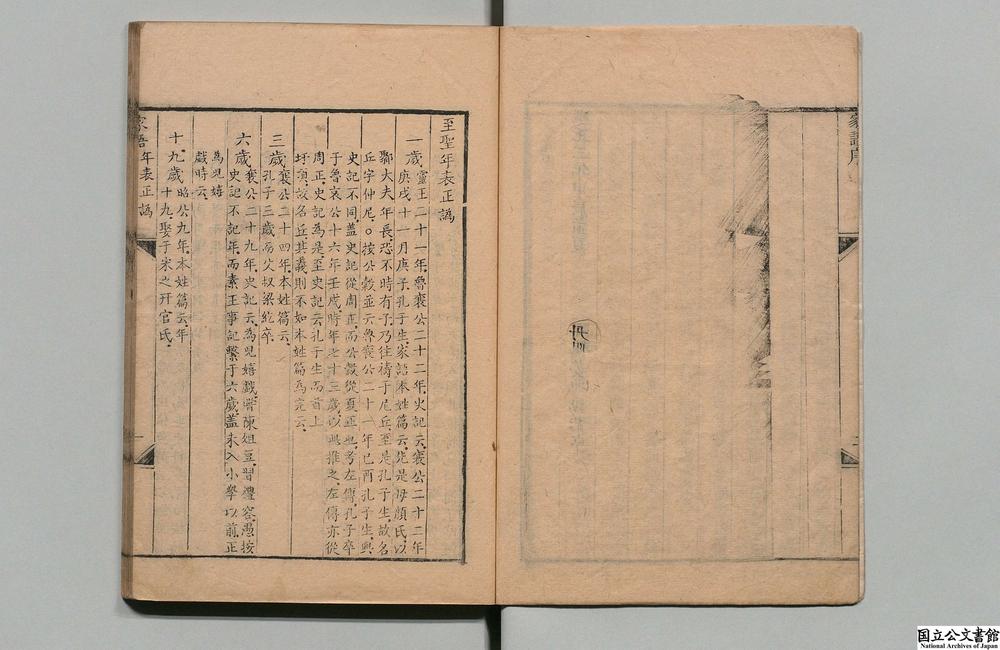 家語序
至聖年表正譌
一歲靈王二十一年魯襄公二十二年史記云襄公二十二年
庚戌十一月庚子孔子生家語本姓篇云先是母顏氏以
鄹大夫年長恐不時有子乃往禱于尼丘至是孔子生故名
丘字仲尼○按公穀並云魯襄公二十一年已酉孔子生與
史記不同蓋史記從周正而公穀從夏正也考左傳孔子卒
于魯哀公十六年壬戌時年七十三歲以此推之左傳亦從
周正史記為是至史記云孔子生而首上
圩頂故名丘其義則不如本姓篇為完云
三歲襄公二十四年本姓篇云
孔子三歲而父叔梁紇卒
六歲襄公二十九年史記云為兒嬉戲嘗陳俎豆習禮容愚按
史記不記年而素王事記繫于六歲蓋未入小學以前正
為兒嬉
戲時云
十九歲昭公九年本姓篇云年
十九娶于宋之幵官氏
家語年表正譌
一
国立公文書館
National Archives of Japan